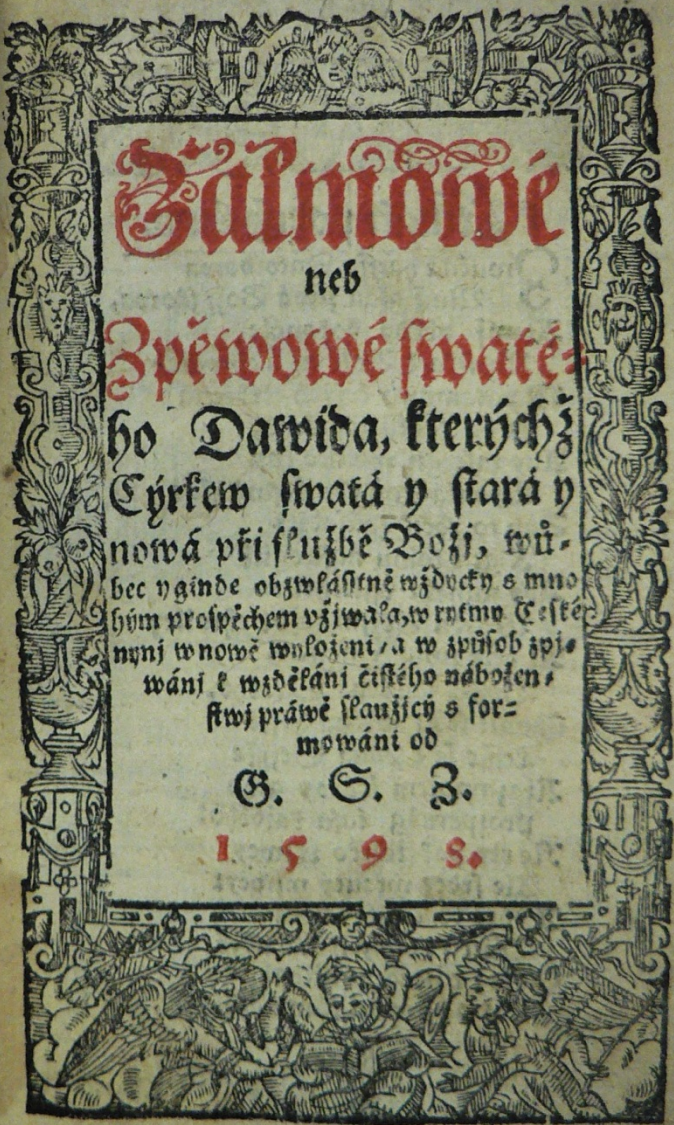 Žalmowé
neb
Zpěwowé swaté-
ho Dawida, kterýchž
Cýrkew swatá y stará y
nowá při službě Božj, wů-
bec y ginde obzwlásstně wždycky s mno
hým prospěchem vžjwala, w rytmy České
nynj w nowě wyloženi, a w způsob zpj-
wánj k wzdělánj čistého nábožen-
stwj práwě slaužjcý s for-
mowáni od
G. S. Z.
1598.